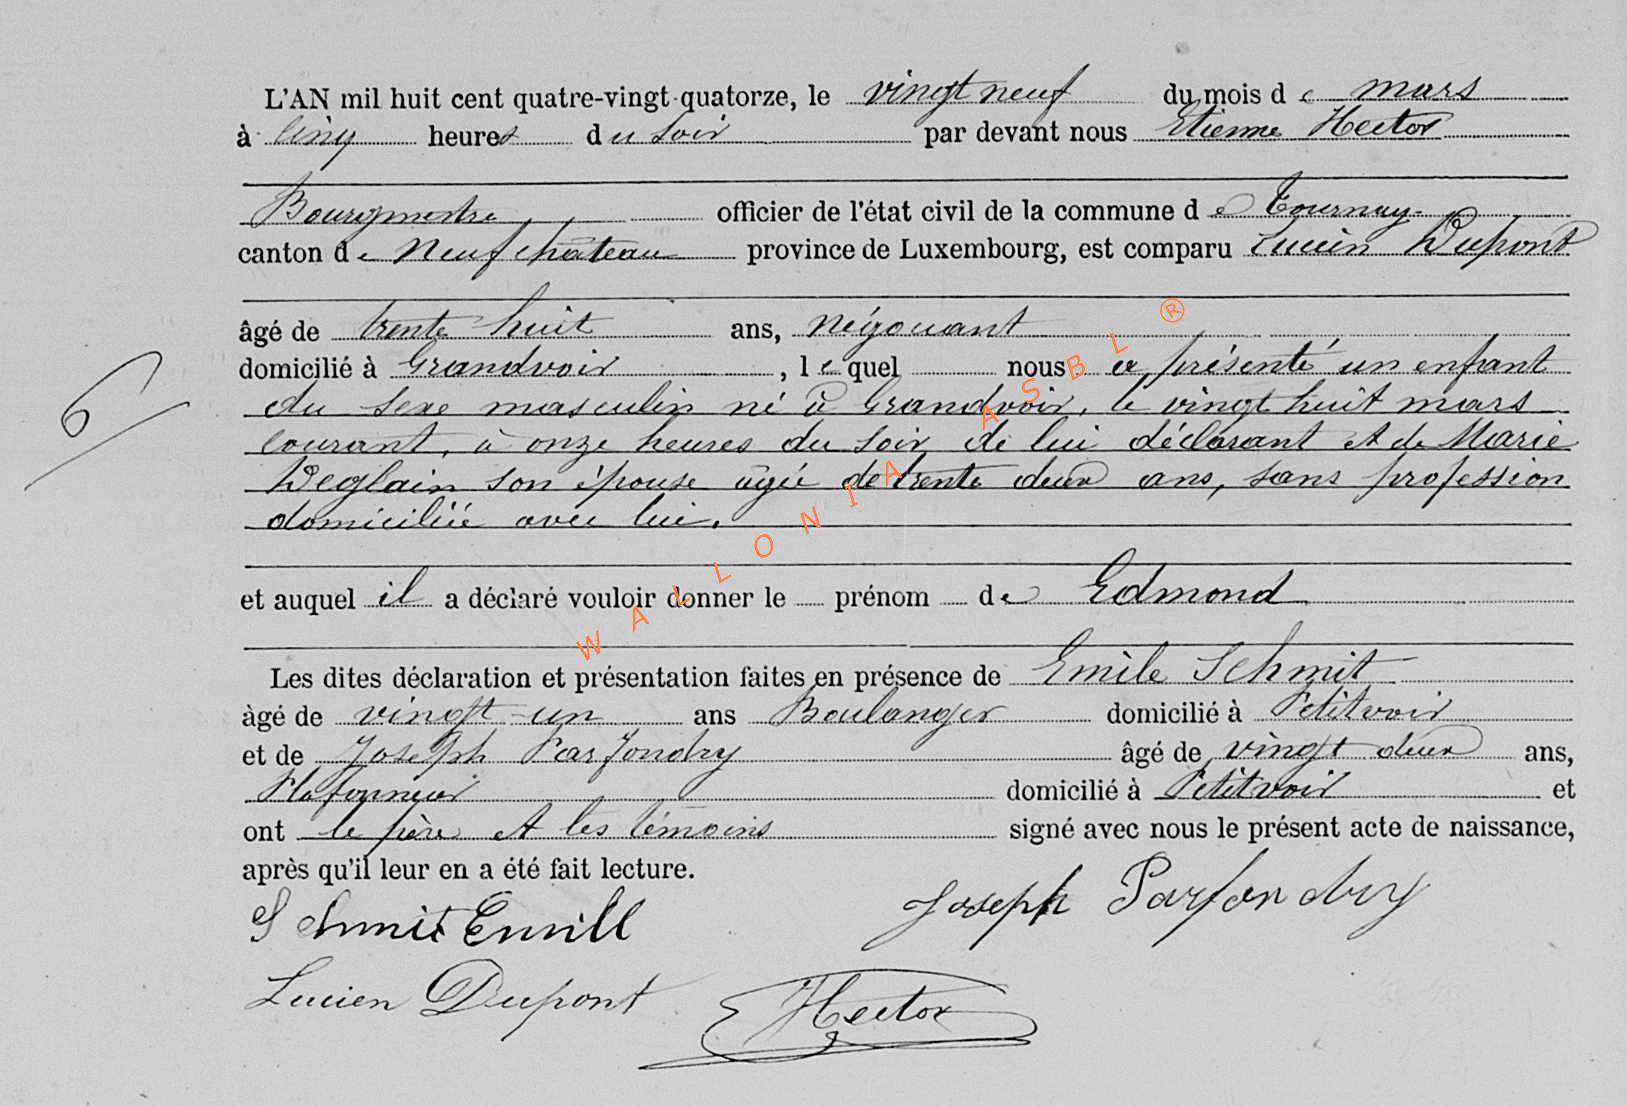 L'AN mil huit cent quatre-vingt-quatorze, le vingt neuf du mois de mars
à cinq heures du soir par devant nous Etienne Hector
Bourgmestre officier de l'état civil de la commune de Tournay
canton de Neufchateau province de Luxembourg, est comparu Lucien Dupont
âgé de trente huit ans, négociant
domicilié à Grandvoir, lequel nous a présenté un enfant
du sexe masculin né à Grandvoir, le vingt huit mars
courant, à onze heures du soir de lui déclarant et de Marie
Deglain son épouse agée de trente deux ans, sans profession
domiciliée avec lui.
et auquel il a déclaré vouloir donner le prénom de Edmond
Les dites déclaration et présentation faites en présence de Emile Schmit
àgé de vingt-un ans Boulanger domicilié à Petitvoir
et de Joseph Parfondry âgé de vingt deux ans,
Plafonneur domicilié à Petitvoir et
ont le père et les témoins signé avec nous le présent acte de naissance,
après qu'il leur en a été fait lecture.
Schmit Emill Joseph Parfondry
Lucien Dupont Hector
6
WALLONIA ASBL ®